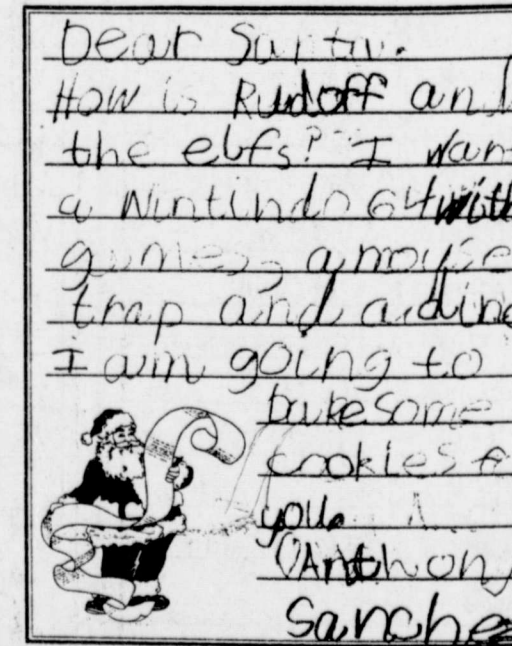 Dear Santa.
How is Rudoff and
the elfs? I wan
a Nintindo 64 with
games, a mouse
trap and a dino
I am going to
bake some
cookies f
you.
Anthony
Sanche